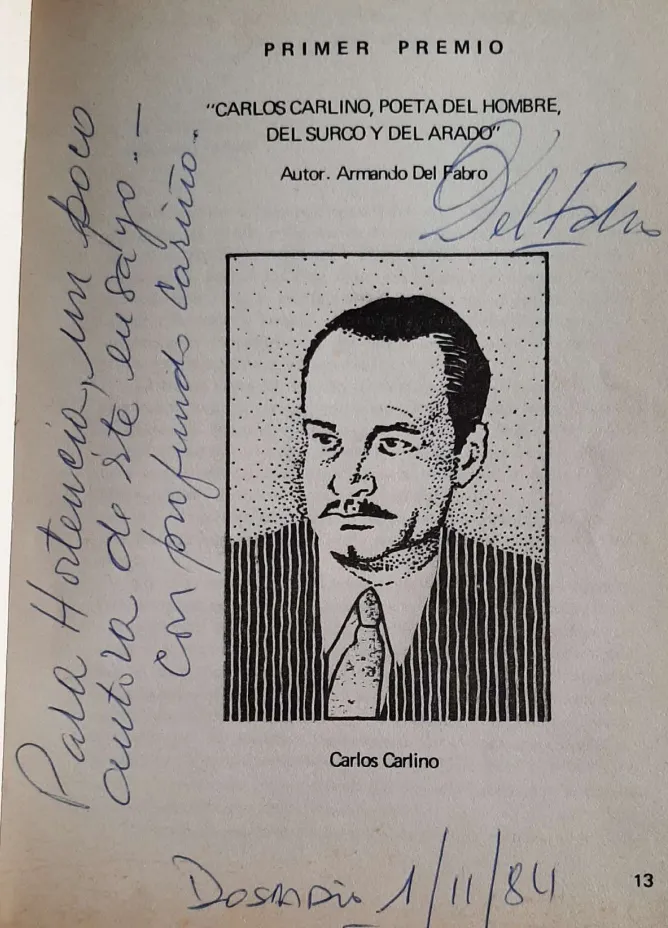 PRIMER PREMIO
"CARLOS CARLINO, POETA DEL HOMBRE,
DEL SURCO Y DEL ARADO"
Autor. Armando Del Fabro
Del Fabro
Para Hortencia, un poco
autora de éste ensayo.. —
con profundo cariño.
Carlos Carlino
1/11/84
13